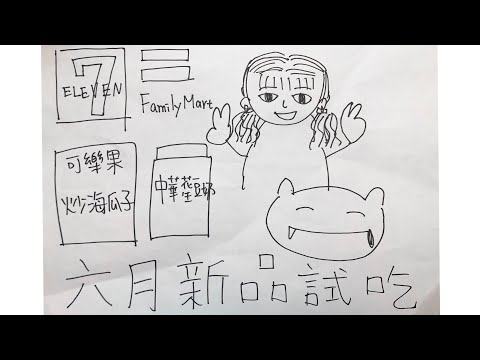 7
ELEVEN
FamilyMart
可樂果
炒海瓜子
中華花生豆奶
六月新品試吃